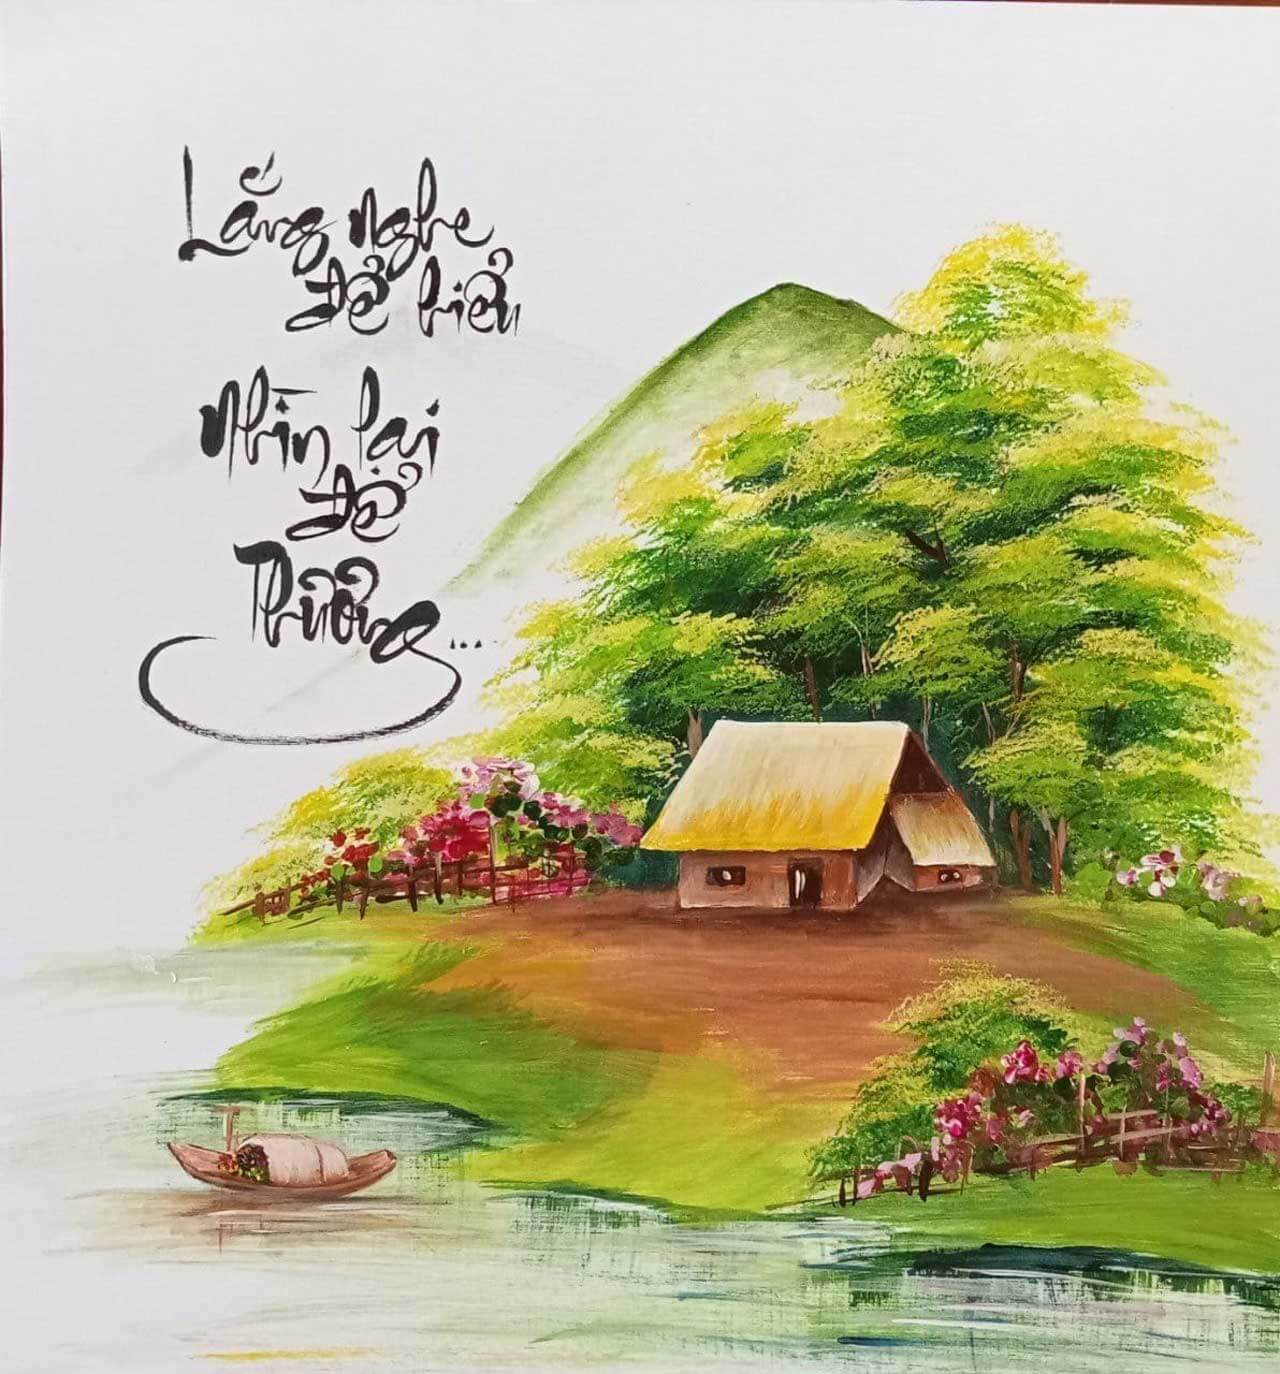 Lắng nghe
để hiểu
Nhìn lại
để
Thương...